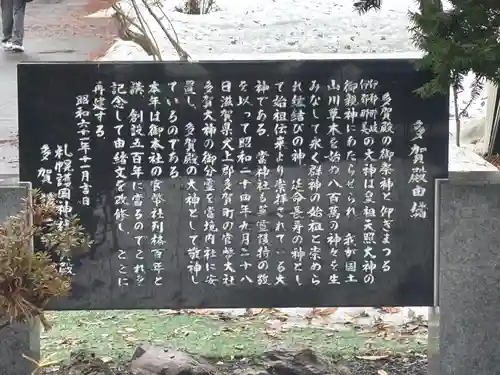 多賀殿由緒
多賀殿の御祭神と仰ぎまつる
の大神は皇祖天照大神の
御親神にあたらせられ、我が国土
山川草木を始め八百萬の神々を生
みなして永く群神の始祖と崇めら
れ縁結びの神、延命長寿の神とし
て始祖伝来より崇拝されている大
神である。當神社も英霊護持の故
を以って昭和二十四年九月二十八
日滋賀県犬上郡多賀町の官幣大社
多賀大神の御分霊を當境内社に安
置し、多賀殿の大神として敬神し
ているのである。
本年は御本社の官幣社列格百年と
講創設五百年に當るのでこれを
記念して由緒文を改修し、ここに
再建する。
昭和六十二年十一月吉日
札幌護国神社
多賀殿